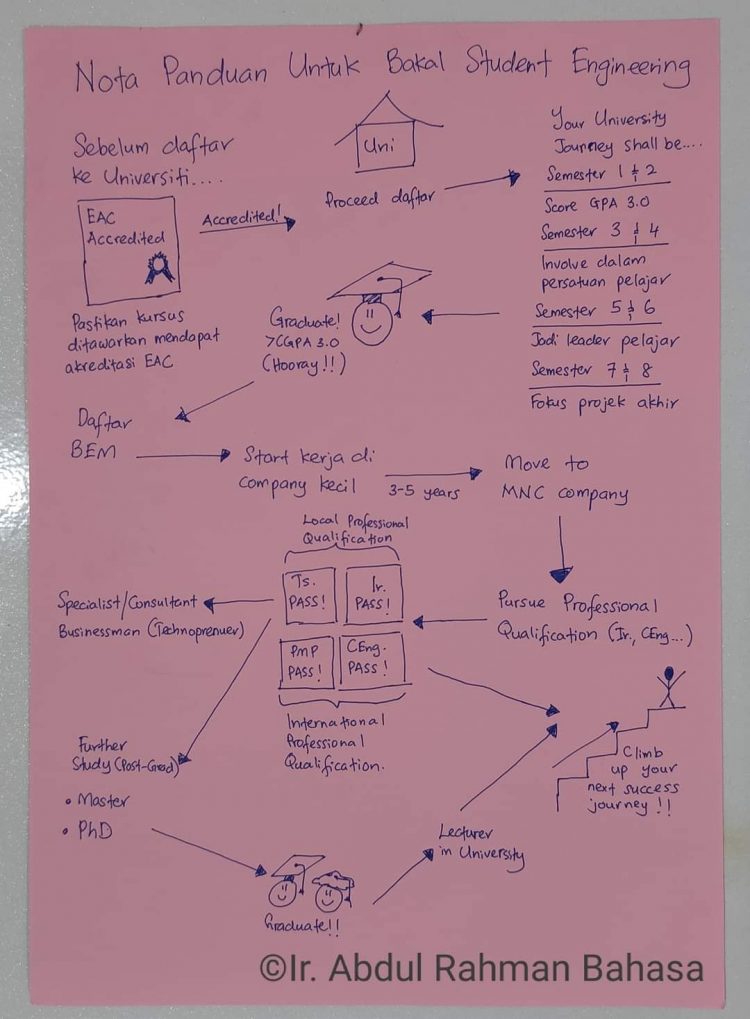 Nota Panduan Untuk Bakal Student Engineering
Sebelum daftar
ke Universiti....
EAC
Accredited
Pastikan kursus
ditawarkan mendapat
akreditasi EAC
Accredited!
Uni
Proceed daftar
Your University
Journey shall be....
Semester 1 & 2
Score GPA 3.0
Semester 3 & 4
Involve dalam
persatuan pelajar
Semester 5 & 6
Jadi leader pelajar
Semester 7 & 8
Fokus projek akhir
Graduate!
>CGPA 3.0
(Hooray!!)
Daftar
BEM
Start kerja di
company kecil
3-5 years
Move to
MNC company
Pursue Professional
Qualification (Ir., CEng...)
Local Professional
Qualification
Ts.
PASS!
Ir.
PASS!
PMP
PASS!
CEng.
PASS!
International
Professional
Qualification.
Specialist/Consultant
Businessman (Technoprenuer)
Further
Study (Post-Grad)
• Master
• PhD
Graduate!!
Lecturer
in University
Climb
up your
next success
journey!!
©Ir. Abdul Rahman Bahasa